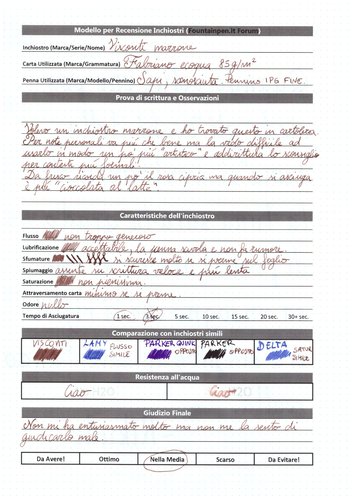 Modello per Recensione Inchiostri (Fountainpen.it Forum)
Inchiostro (Marca/Serie/Nome) Visconti marrone
Carta Utilizzata (Marca/Grammatura) Fabriano ecoqua 85g/m²
Penna Utilizzata (Marca/Modello/Pennino) Safari, pennino
Prova di scrittura e Osservazioni
Volevo un inchiostro marrone e ho trovato questo in cartoleria
Per note personali va più che bene ma la vedo difficile ad
usarlo in modo un po' più "artistico" e addirittura lo sconsiglio
per contesti più formali!
Da fresco ricorda un po' il rosa cipria ma quando si asciuga
è più "cioccolata al latte"
Caratteristiche dell'inchiostro
Flusso non troppo generoso
Lubrificazione accettabile, la penna scivola e non fa rumore.
Sfumature si scurisce molto se si preme sul foglio
Spiumaggio assente su scrittura veloce e più lenta
Saturazione non pienissima.
Attraversamento carta minimo se si preme.
Odore nullo
Tempo di Asciugatura 1 sec. 3 sec. 5 sec. 10 sec. 15 sec. 20 sec. 30+ sec.
Comparazione con inchiostri simili
VISCONTI LAMY FLUSSO SIMILE PARKER QUINK OPPOSTO PARKER OPPOSTO DELTA SATUR. SIMILE
Resistenza all'acqua
Ciao Ciao
Giudizio Finale
Non mi ha entusiasmato molto ma non me la sento di
giudicarlo male.
Da Avere! Ottimo Nella Media Scarso Da Evitare!